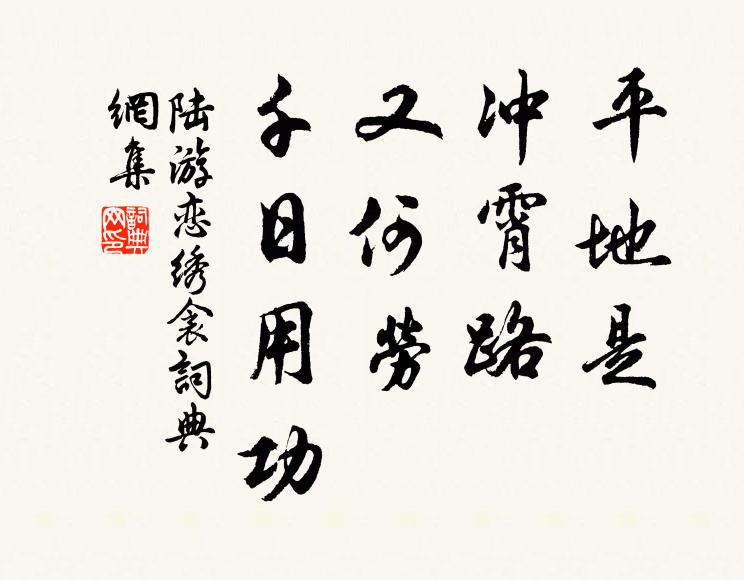 平地是
冲霄路
又何勞
千日用功
陆游恋绣衾詞典
網集
詞典
网印